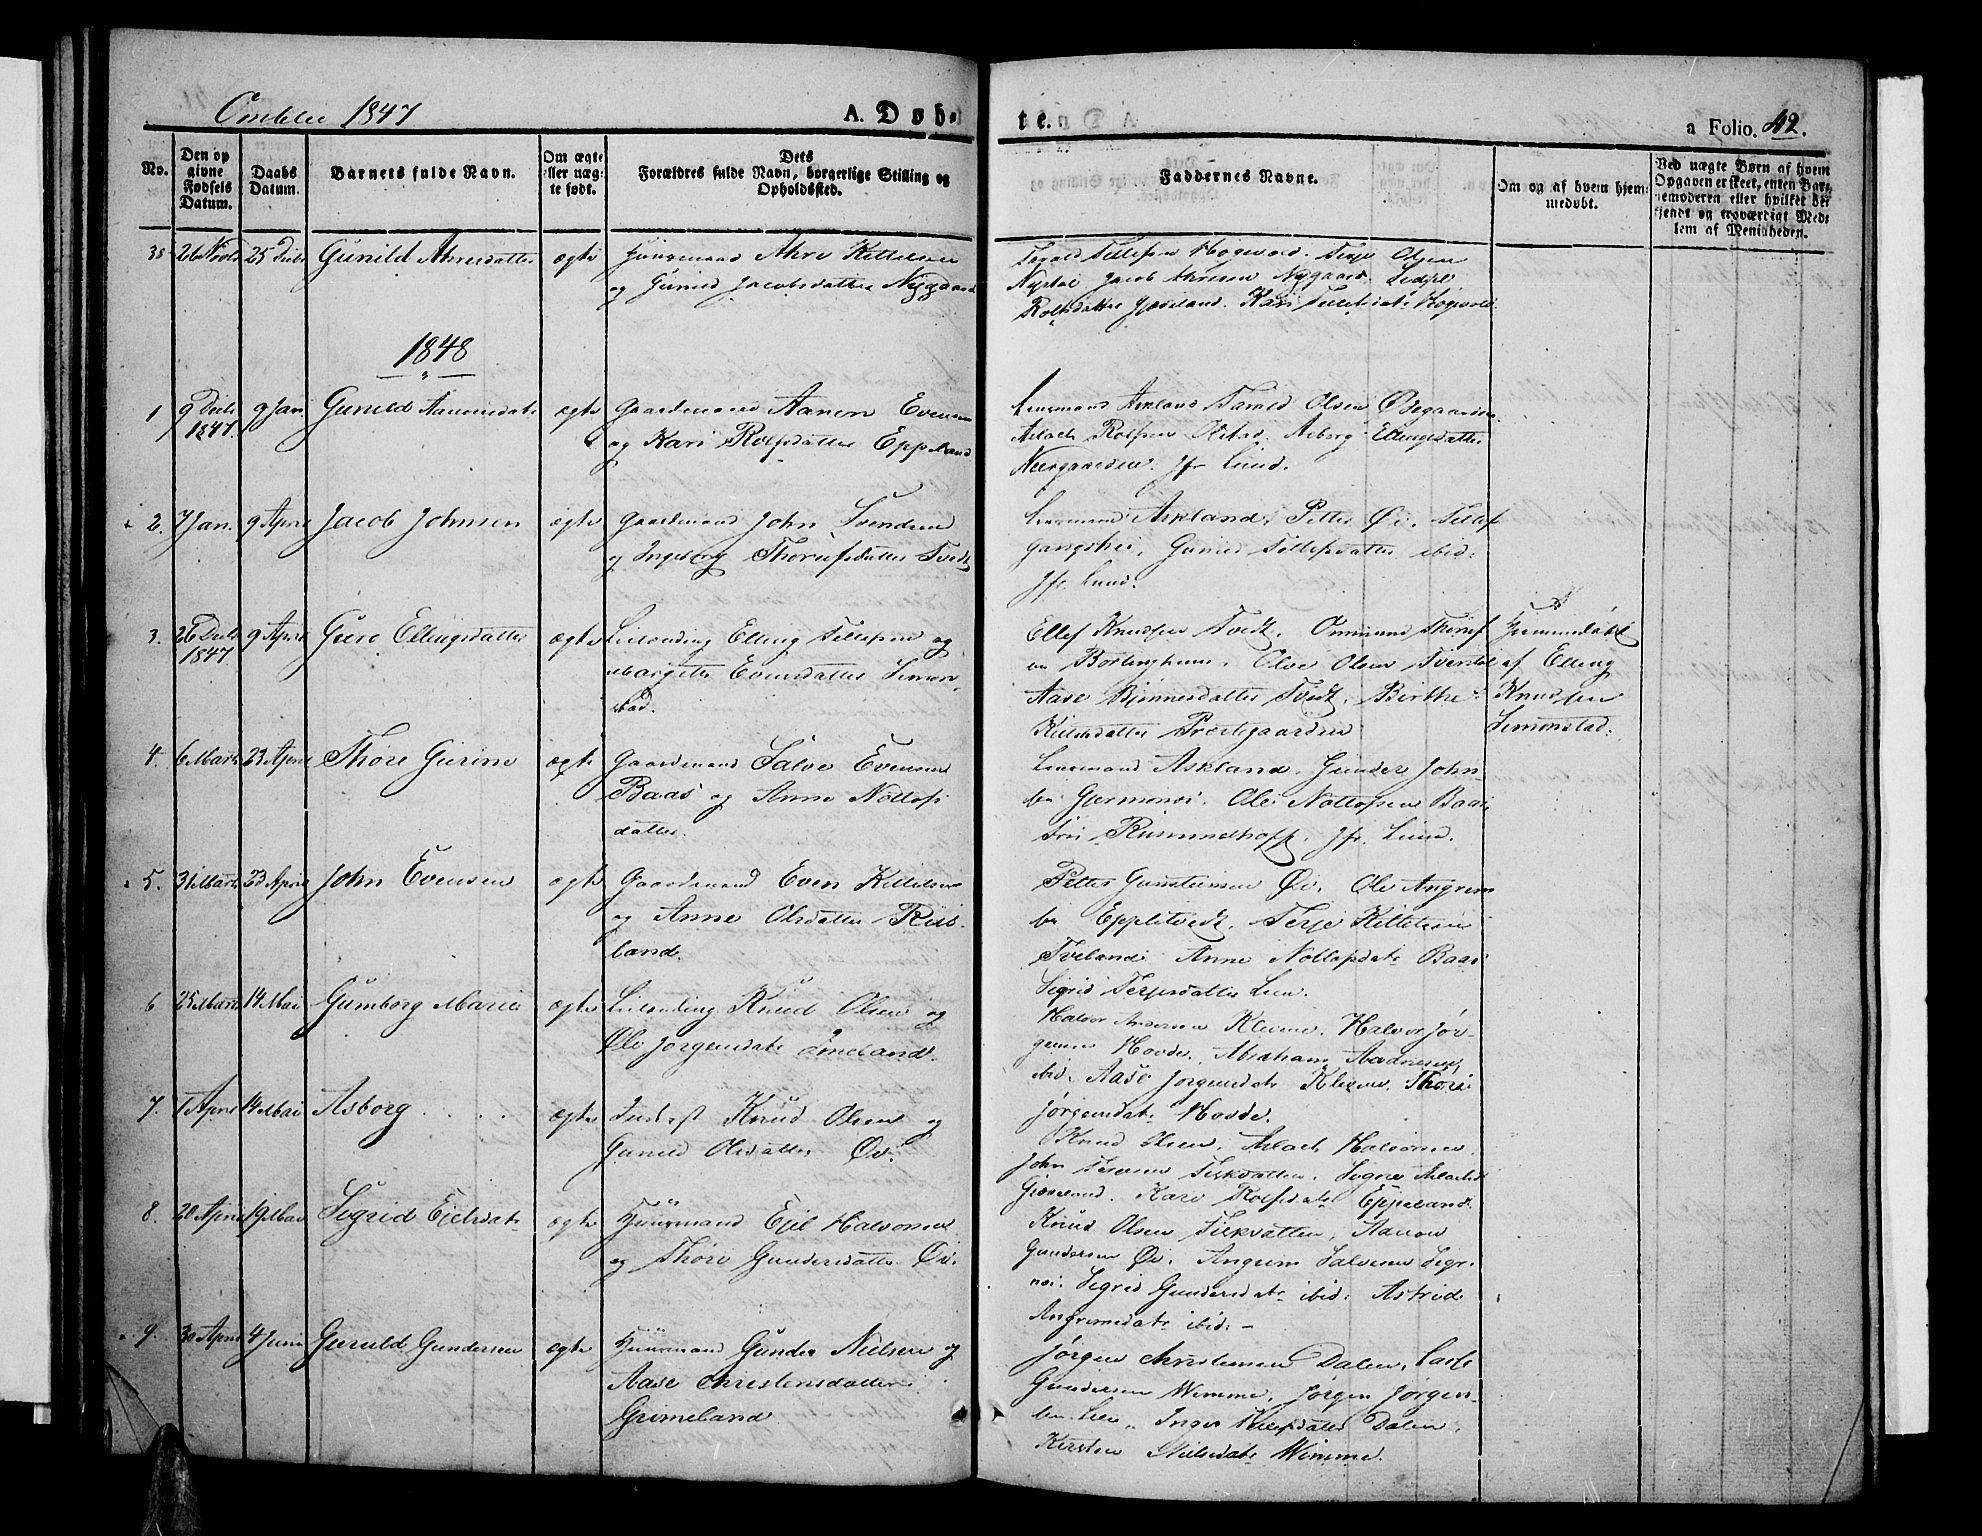 Omblie 1847
A. Døb-
te.
a Folio. 42.
No.
Den op
givne
Fødsels
Datum.
Daabs
Datum.
Barnets fulde Navn.
Om ægte
eller uæg-
te født.
Dets
Forældres fulde Navn, borgerlige Stilling og
Opholdssted.
Faddernes Navne.
Om og af hvem hjem-
medøbt.
Ved uægte Børn af hvem
Opgaven er skeet, enten Bar-
nemoderen eller hvilket be-
kjendt og troværdigt Med-
lem af Menigheden.
35 26 Novb 25 Decbr Gunild Ahresdatter ægte Huusmand Ahre Kittelsen
og Gunild Jacobsdatter Nygaard
Tarald Tellefsen Høgevold. Terje Olsen
Jacob Ahresen Nygaard
Rolfsdatter Kari Tellefsdatr Høgevold
1848
1 9 Decb 9 Jan Gunild Aanonsdatr ægte Gaardmand Aanon Evensen
1847. og Kari Rolfsdatter Eppeland
Lensmand Askland Tarald Olsen Ødegaarden
Aslach Rolfsen Olstad. Asborg Ellingsdatter
Neergaarden. Jfr Lund.
2. 7 Jan. 9 April Jacob Johnsen ægte Gaardmand John Svendsen
og Ingeborg Thorufsdatter Tvedt
Lensmand Askland. Petter Øi. Tellef
Gangshei, Gunild Tellefsdatter ibid:
Jfr. Lund.
3. 26 Decb 9 April Guro Ellingsdatter ægte Leilænding Elling Tellefsen og
1847 Margitte Evensdatter Simon-
stad.
Ellef Knudsen Tvedt. Ommund Thorufs
en Olve Olsen
Aase Bjønnesdatter Tvedt. Birthe
Kittelsdatter Præstegaarden
Hjemmedøbt
af Elling
Knudsen
Simonstad.
4. 6 Marts 23 April Thore Gurine ægte Gaardmand Salve Evensen
Baas og Anne Nottofs
datter.
Lensmand Askland. Gunder John-
sen Ole Nottofsen Baas
Rummelhoff. Jfr. Lund.
5. 31 Marts 23 April John Evensen ægte Gaardmand Even Kittelsen
og Anne Olsdatter Riis-
land.
Petter Gunsteinsen Øi. Ole Angrim
sen Eppletvedt. Terje Kittelsen
Tveland. Anne Nottofsdatr Baas
Sigrid Terjesdatter Lien.
6 25 Marts 14 Mai Gumborg Marie ægte Leilænding Knud Olsen og
Jørgensdatr
Halvor Andersen Klevene. Halvor Jør-
gensen Hovde. Abraham Aadnesen
ibid. Aase Jørgensdatr Klevene. Thore
Jørgensdatr Hovde.
7. 1 April 14 Mai Asborg. . . . ægte Inderst Knud Olsen og
Gunild Olsdatter Øi.
Knud Olsen. Aslach Halvorsen
John Terjesen Fiskvatten. Signe Aslachsd
Kari Rolfsdatr Eppeland.
8. 20 April 19 Mai Sigrid Ejelsdatr ægte Huusmand Ejel Halvorsen
og Thore Gundersdatter Øi.
Knud Olsen Fiskvatten, Aanon
Gundersen Øi. Angrim Salvesen Sigr-
næs. Sigrid Gundersdatr ibid: Astrid
Angrimsdatr ibid: –
9. 30 April 4 Juni Gunuld Gundersen ægte Huusmand Gunder Nielsen og
Aase Christensdatter
Grimeland
Jørgen Christensen Dalen. Carl
Gundersen Wimme. Jørgen Jørgen-
sen Lien. Inger Dalen.
Kirsten Nielsdatr Wimme.